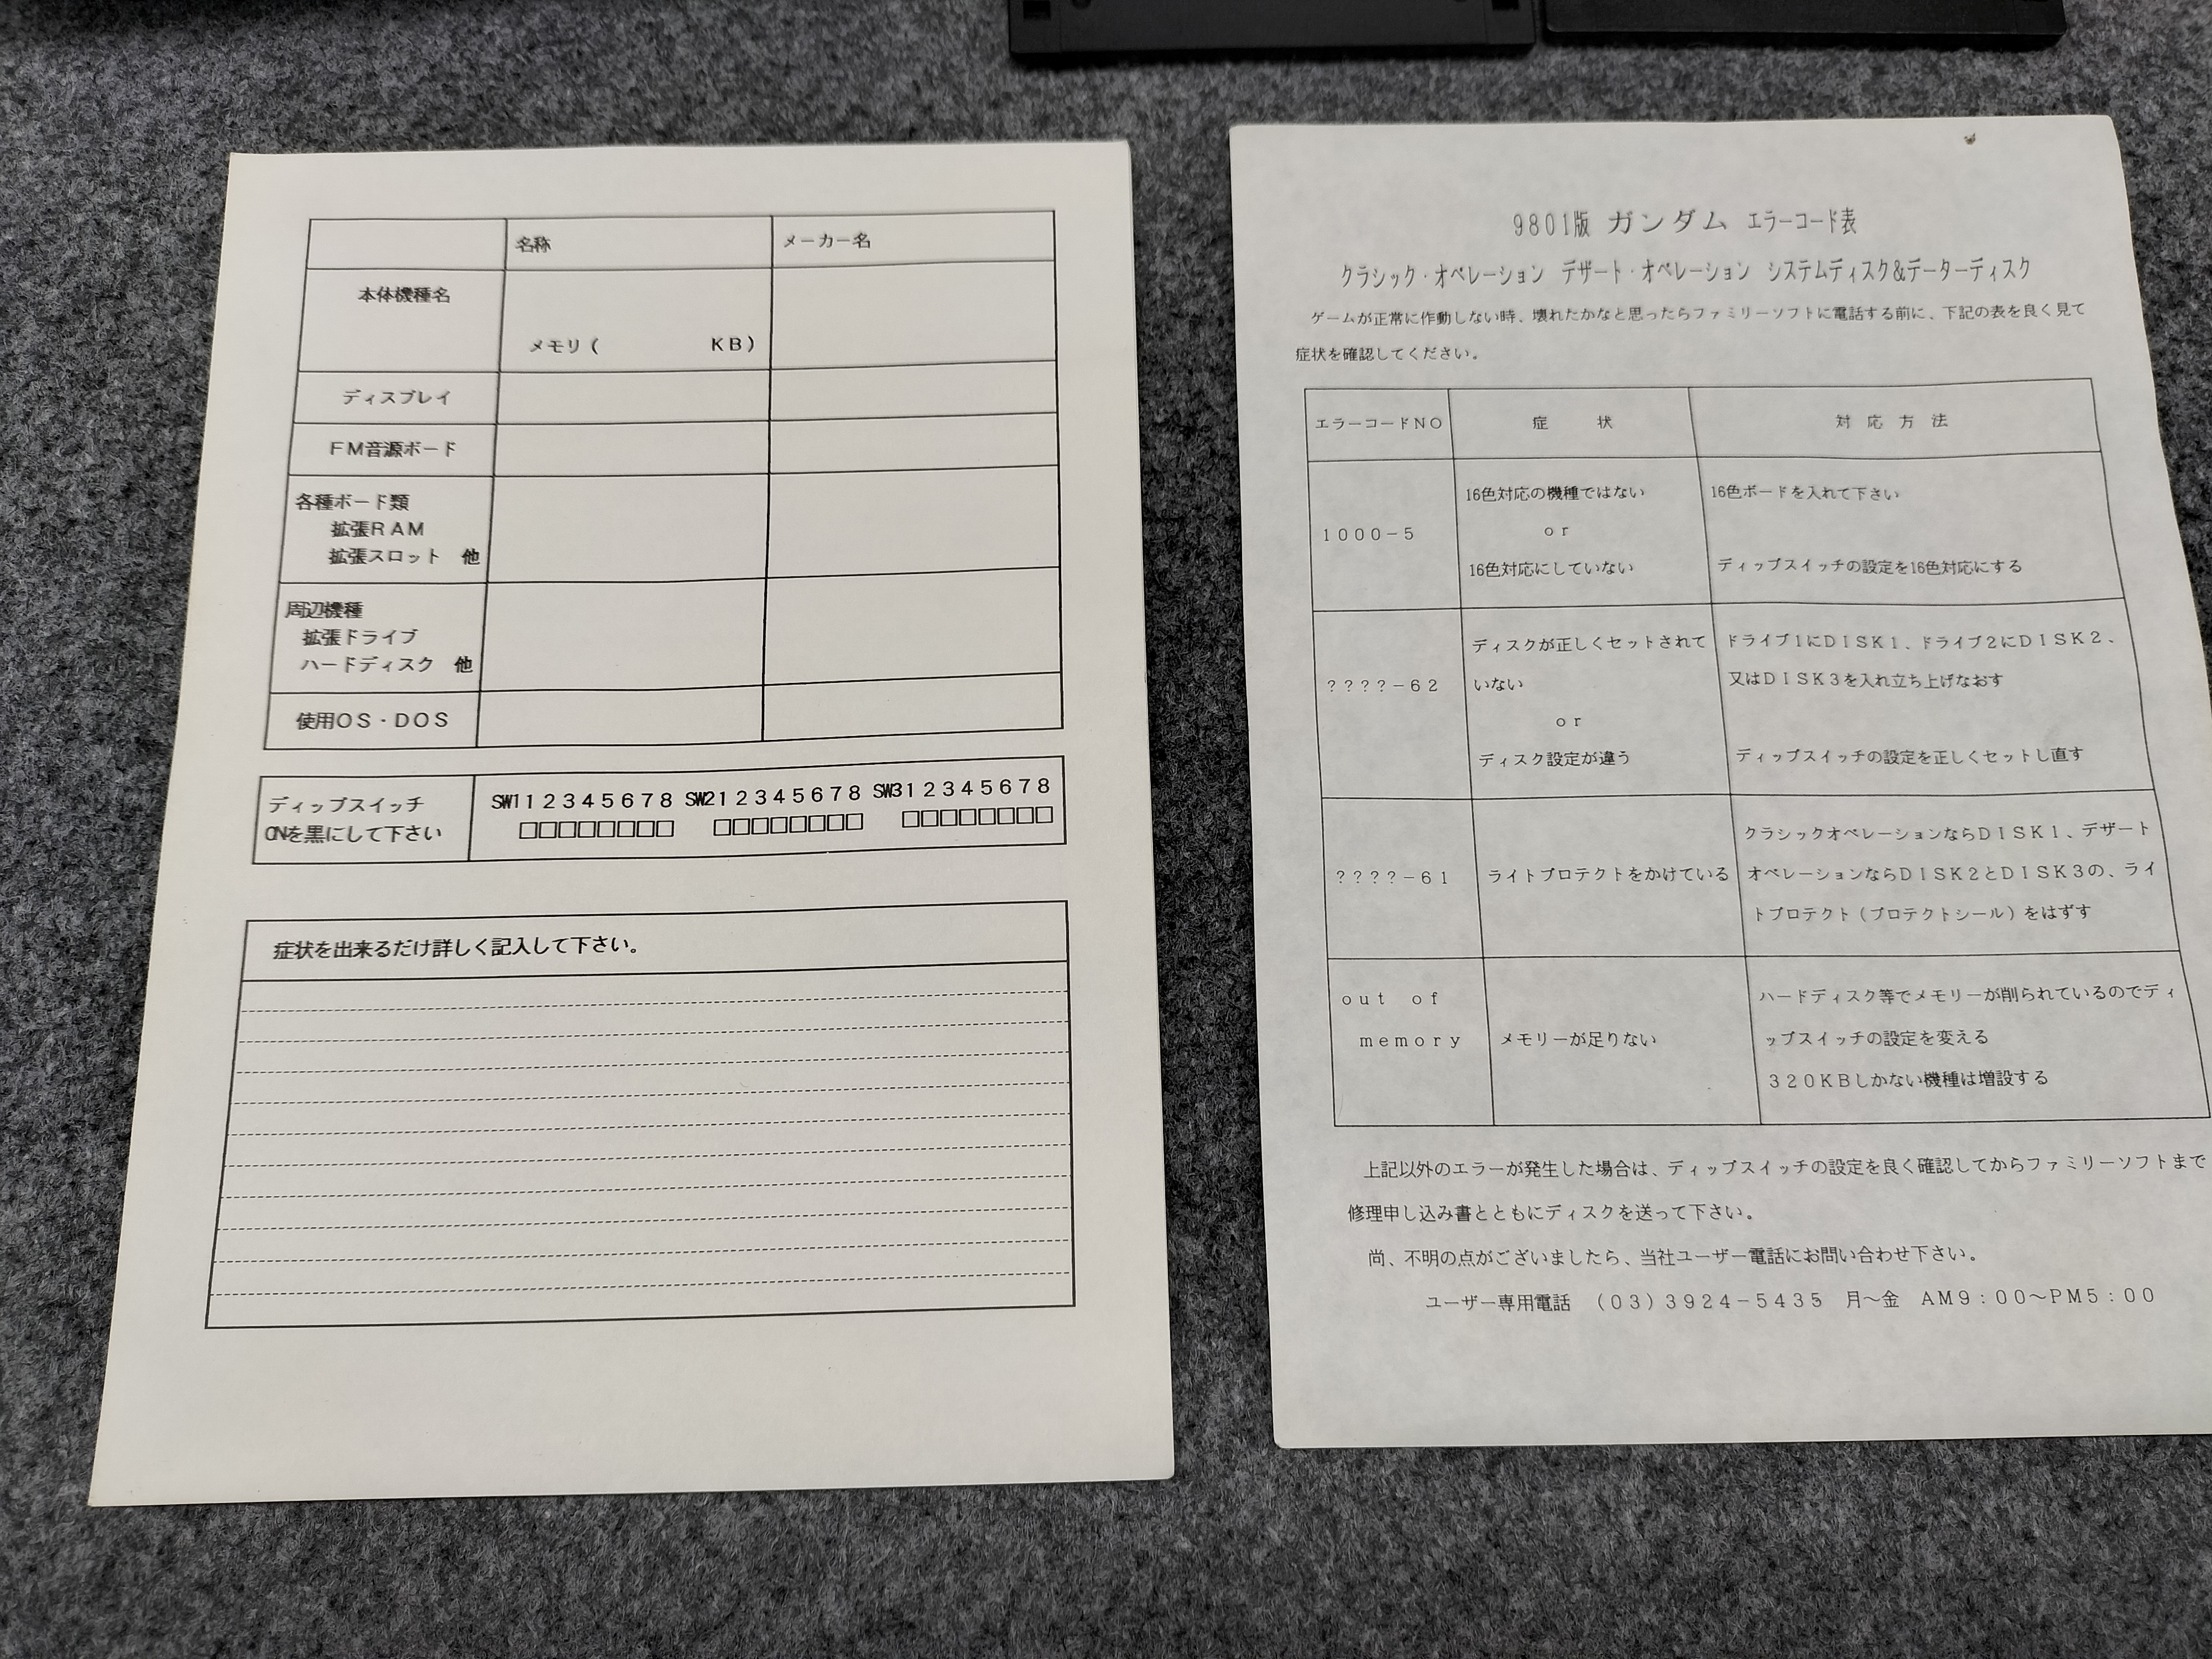 名称
メーカー名
本体機種名
メモリ(　　　　KB)
ディスプレイ
FM音源ボード
各種ボード類
拡張RAM
拡張スロット　他
周辺機種
拡張ドライブ
ハードディスク　他
使用OS・DOS
ディップスイッチ
ONを黒にして下さい
SW1 1 2 3 4 5 6 7 8 SW2 1 2 3 4 5 6 7 8 SW3 1 2 3 4 5 6 7 8
□□□□□□□□ □□□□□□□□ □□□□□□□□
症状を出来るだけ詳しく記入して下さい。
9801版 ガンダム エラーコード表
クラシック・オペレーション　デザート・オペレーション　システムディスク&データーディスク
ゲームが正常に作動しない時、壊れたかなと思ったらファミリーソフトに電話する前に、下記の表を良く見て
症状を確認してください。
エラーコードNO
症　状
対 応 方 法
1000-5
16色対応の機種ではない
or
16色対応にしていない
16色ボードを入れて下さい
ディップスイッチの設定を16色対応にする
????-62
ディスクが正しくセットされて
いない
or
ディスク設定が違う
ドライブ1にDISK1、ドライブ2にDISK2、
又はDISK3を入れ立ち上げなおす
ディップスイッチの設定を正しくセットし直す
????-61
ライトプロテクトをかけている
クラシックオペレーションならDISK1、デザート
オペレーションならDISK2とDISK3の、ライ
トプロテクト(プロテクトシール)をはずす
out of
memory
メモリーが足りない
ハードディスク等でメモリーが削られているのでディ
ップスイッチの設定を変える
320KBしかない機種は増設する
上記以外のエラーが発生した場合は、ディップスイッチの設定を良く確認してからファミリーソフトまで
修理申し込み書とともにディスクを送って下さい。
尚、不明の点がございましたら、当社ユーザー電話にお問い合わせ下さい。
ユーザー専用電話　(03)3924-5435　月～金　AM9:00～PM5:00